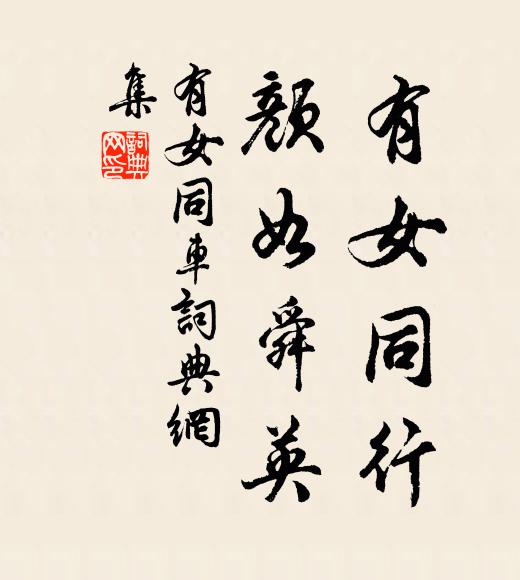 有女同行
顏如舜英
有女同車詞典網
集
詞典網印